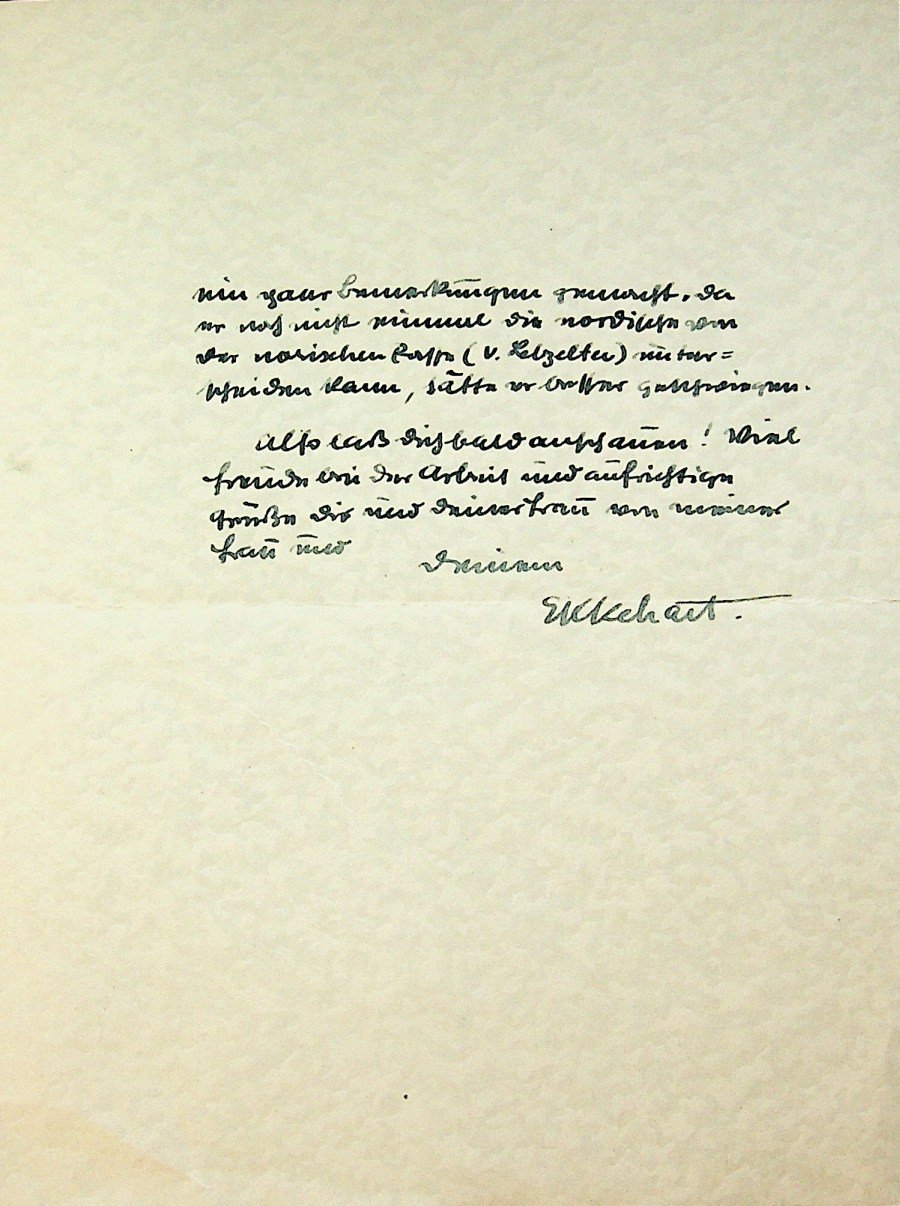 ein paar Bemerkungen gemacht. Da
er noch nicht einmal die nordische von
der norischen Rasse (v. Lebzelter) unter=
scheiden kann, hätte er besser geschwiegen.
Also laß dich bald anschauen! Viel
Freude bei der Arbeit und aufrichtige
Grüße dir und deiner Frau von meiner
Frau und
deinem
Ekkehart.